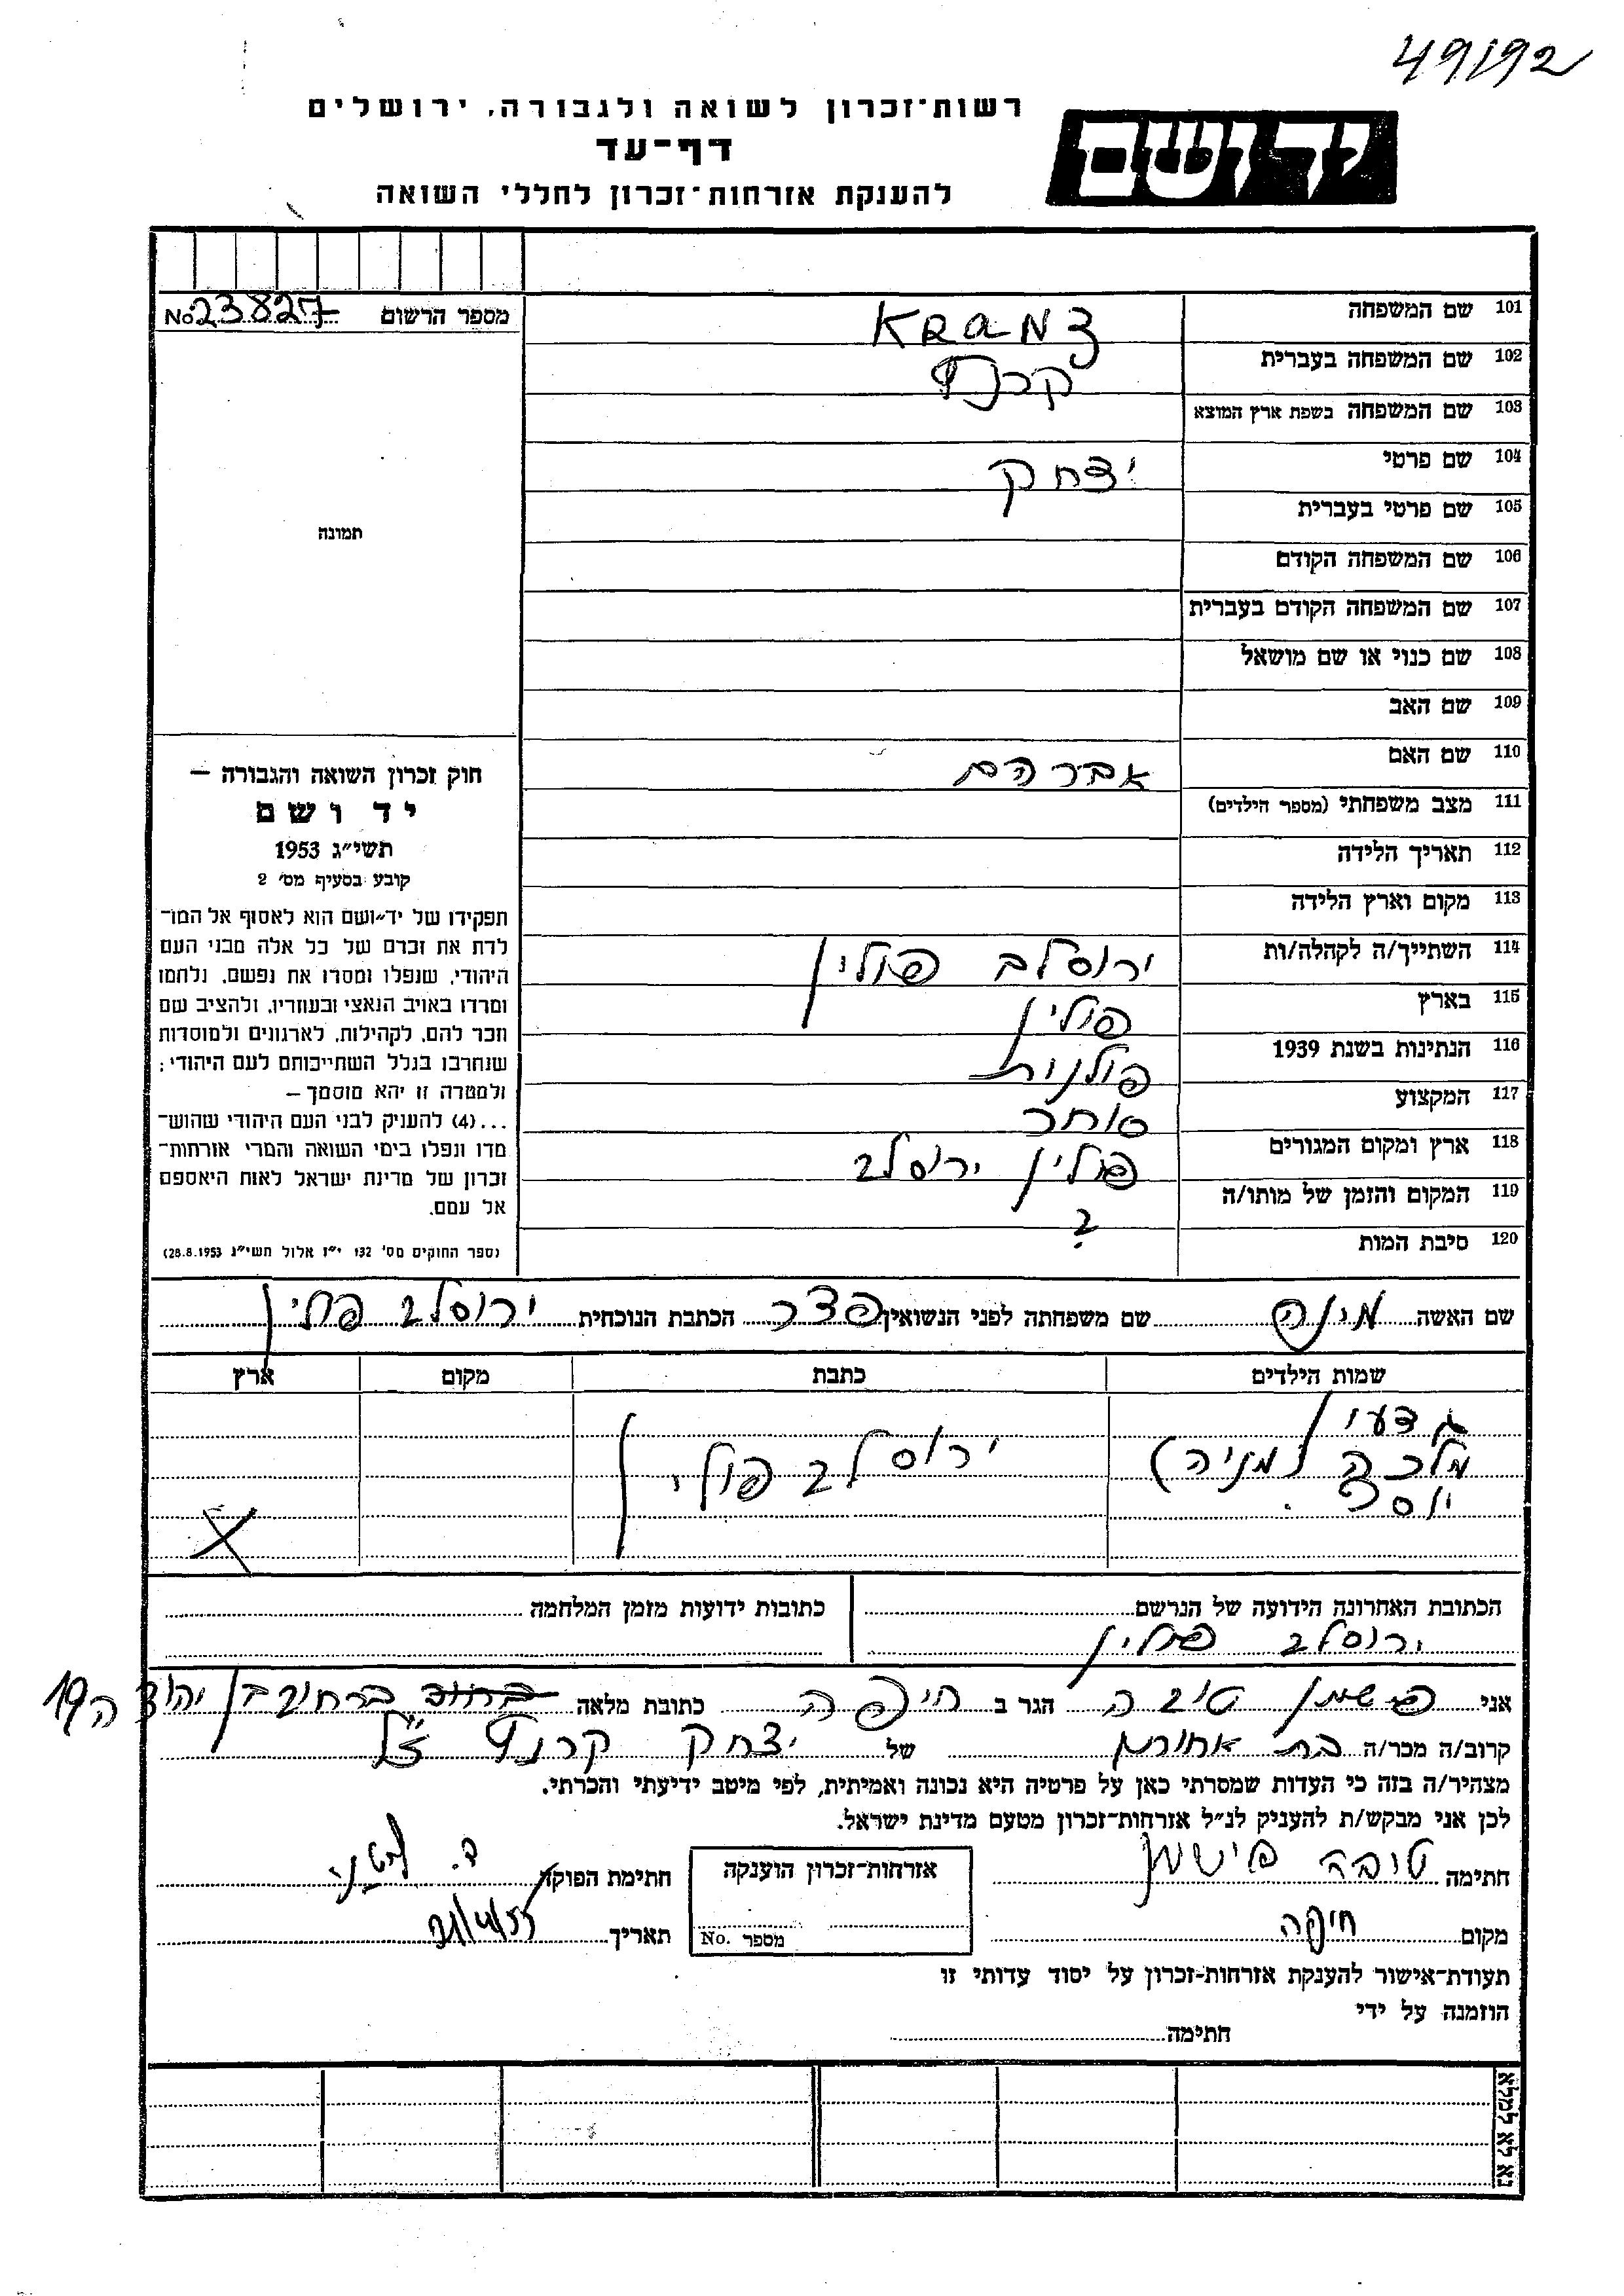 49192
רשות־זכרון לשואה ולגבורה, ירושלים
דף־עד
להענקת אזרחות־זכרון לחללי השואה
יד ושם
מספר הרשום No 23827
תמונה
חוק זכרון השואה והגבורה —
יד ושם
תשי״ג 1953
קובע בסעיף מס׳ 2
תפקידו של יד־ושם הוא לאסוף אל המו־
לדת את זכרם של כל אלה מבני העם
היהודי, שנפלו ומסרו את נפשם, נלחמו
ומרדו באויב הנאצי ובעוזריו, ולהציב שם
וזכר להם, לקהילות, לארגונים ולמוסדות
שנחרבו בגלל השתייכותם לעם היהודי;
ולמטרה זו יהא מוסמך —
...(4) להעניק לבני העם היהודי שהוש־
מדו ונפלו בימי השואה והמרי אזרחות־
זכרון של מדינת ישראל לאות היאספם
אל עמם.
(ספר החוקים מס׳ 132 י״ז אלול תשי״ג 28.8.1953)
101 שם המשפחה KRANZ
102 שם המשפחה בעברית קרנץ
103 שם המשפחה בשפת ארץ המוצא
104 שם פרטי יצחק
105 שם פרטי בעברית
106 שם המשפחה הקודם
107 שם המשפחה הקודם בעברית
108 שם כנוי או שם מושאל
109 שם האב
110 שם האם אברהם
111 מצב משפחתי (מספר הילדים)
112 תאריך הלידה
113 מקום וארץ הלידה
114 השתייך/ה לקהלה/ות ירוסלב פולין
115 בארץ פולין
116 הנתינות בשנת 1939 פולנית
117 המקצוע סוחר
118 ארץ ומקום המגורים פולין ירוסלב
119 המקום והזמן של מותו/ה ?
120 סיבת המות
שם האשה מינה שם משפחתה לפני הנשואין פצר הכתבת הנוכחית ירוסלב פולין
שמות הילדים כתבת מקום ארץ
מלכה (מניה) ירוסלב פולין
יוסף
הכתובת האחרונה הידועה של הנרשם כתובות ידועות מזמן המלחמה
ירוסלב פולין
אני פישמן טובה הגר ב חיפה כתובת מלאה ברחוב בן יהודה 19
קרוב/ה מכר/ה בת אחותו של יצחק קרנץ ז״ל
מצהיר/ה בזה כי העדות שמסרתי כאן על פרטיה היא נכונה ואמיתית, לפי מיטב ידיעתי והכרתי.
לכן אני מבקש/ת להעניק לנ״ל אזרחות־זכרון מטעם מדינת ישראל.
חתימה טובה פישמן אזרחות־זכרון הוענקה חתימת הפוקד
מקום חיפה מספר No. תאריך
תעודת־אישור להענקת אזרחות־זכרון על יסוד עדותי זו
הוזמנה על ידי
חתימה
נא לא למלא